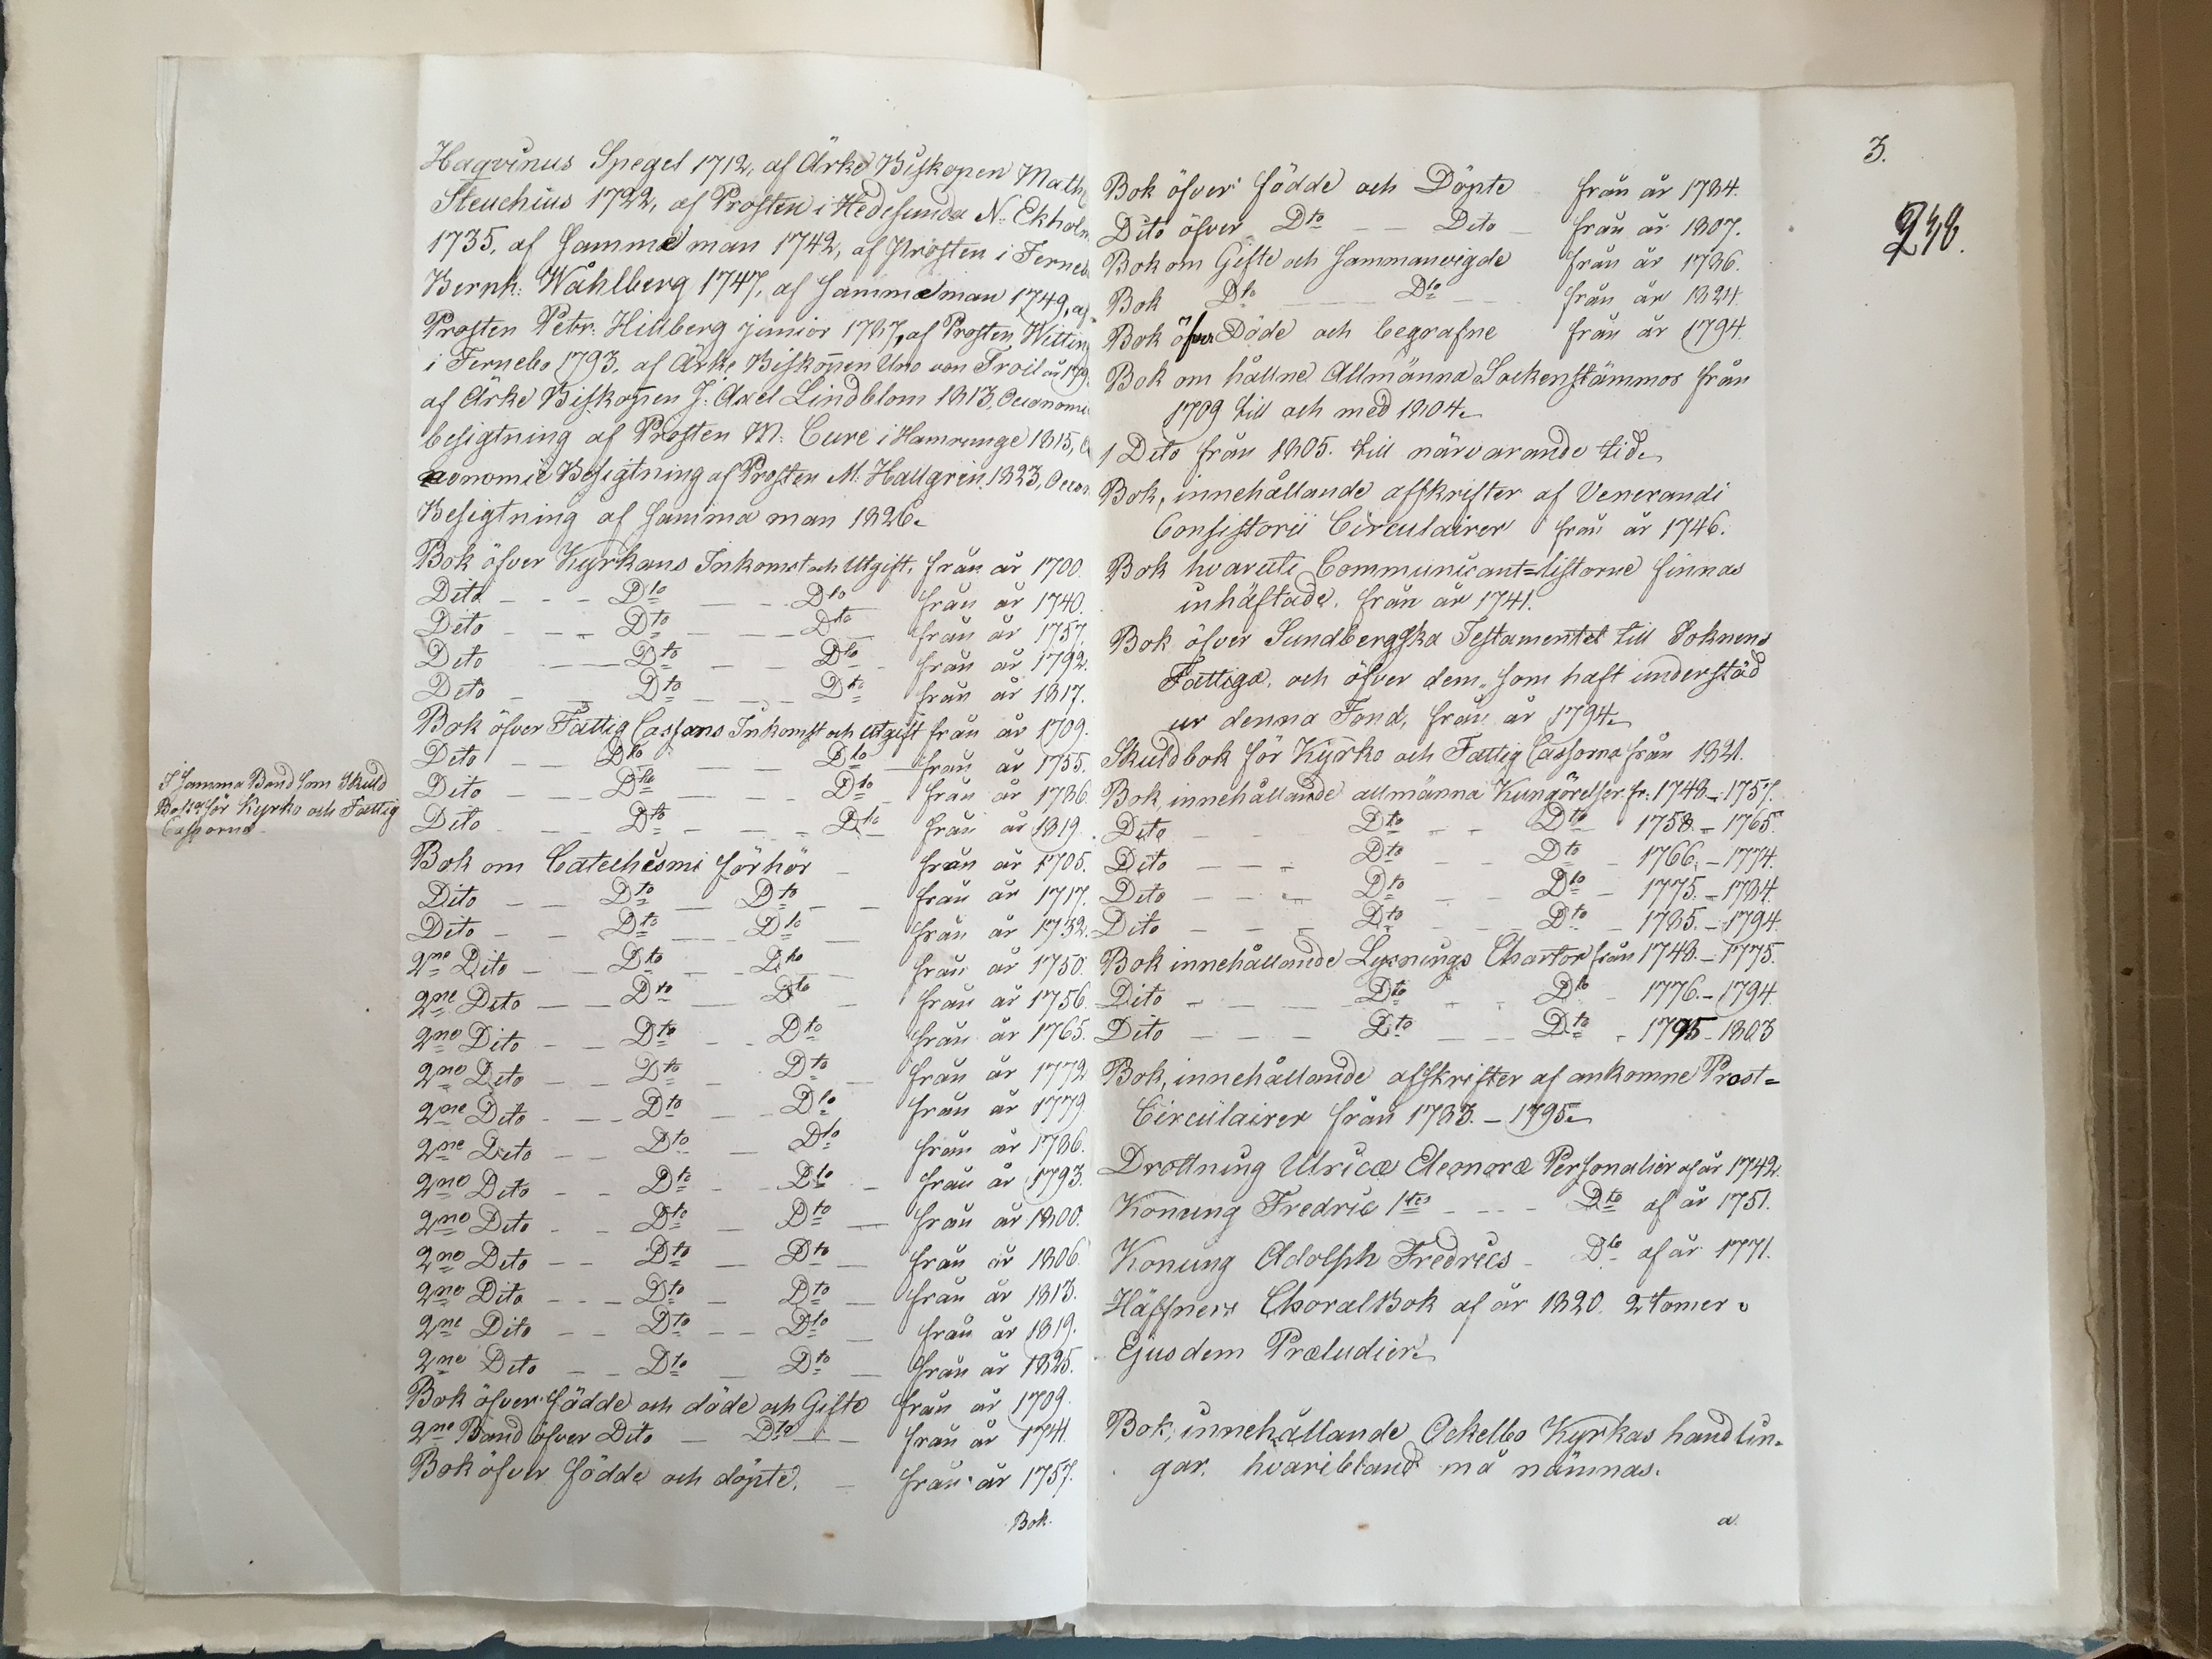 Haqvinus Spegel 1712, af Ärke Biskopen Math
Steuchius 1722, af Prosten i Hedesunda N. Ekholm
1735, af samma man 1742, af Prosten i Ferneb
Bernh: Wåhlberg 1747, af samma man 1749, af
Prosten Petr. Hillberg junior 1787, af Prosten Witting
i Fernebo 1793, af Ärke Biskoppen Uno von Troil år 179
af Ärke Biskopen J. Axel Lindblom 1813, Oeconomie
besigtning af Prosten M. Cure i Hamrunge 1815,
conomie Besigtning af Prosten M. Hallgren 1823, Oecon
Besigtning af samma man 1826.
Bok öfver Kyrkans Inkomst och Utgift, från år 1700.
Dito - - - Dto - - Dto från år 1740.
Dito - - - Dto - - Dto från år 1757.
Dito - - - Dto - - Dto från år 1792.
Dito - - Dto - - Dto från år 1817.
Bok öfver Fattig Cassans Inkomst och utgift från år 1709.
Dito - - Dto - - Dto från år 1755.
Dito - - Dto - - Dto från år 1786.
I samma Band som Skuld
Boken för Kyrko och Fattig
Cassorna.
Dito - - Dto - - Dto från år 1819.
Bok om Catechismi förhör - från år 1705.
Dito - - Dto - Dto - - från år 1717.
Dito - - Dto - Dto - från år 1732.
2ne Dito - - Dto - - Dto från år 1750.
2ne Dito - - Dto - Dto - från år 1756.
2ne Dito - - Dto - - Dto från år 1765.
2ne Dito - - Dto - Dto - från år 1772
2ne Dito - - - Dto - - Dto från år 1779
2ne Dito - - Dto - Dto från år 1786.
2ne Dito - - Dto - - Dto - från år 1793.
2ne Dito - - Dto - Dto - från år 1800.
2ne Dito - - Dto - Dto - från år 1806.
2ne Dito - - - Dto - Dto - från år 1813.
2ne Dito - - Dto - - Dto - från år 1819.
2ne Dito - Dto - Dto - från år 1825.
Bok öfver födde och döde och Gifte från år 1709.
2ne Band öfver Dito - Dto - från år 1741.
Bok öfver födde och döpte. - från år 1757.
Bok.
3.
230.
Bok öfver födde och Döpte från år 1784.
Dito öfver Dto - - Dito - från år 1807.
Bok om Gifte och sammanvigde från år 1786.
Bok Dto - - Dto - från år 1824.
Bok öfver Döde och begrafne från år 1794.
Bok om hållne Allmänna Sockenstämmor från
1709 till och med 1804.
1 Dito från 1805. till närvarande tid.
Bok, innehållande afskrifter af Venerandi
Consistorii Circulairer från år 1746.
Bok hvaruti Communicant=listorne finnas
inhäftade, från år 1741.
Bok öfver Sundbergska Testamentet till Soknens
Fattiga, och öfver dem, som haft understöd
ur denna Fond, från år 1794.
Skuldbok för Kyrko och Fattig Cassorna från 1821.
Bok, innehållande allmänna Kungörelser fr: 1748.-1757.
Dito - - Dto - - Dto 1758.-1765.
Dito - - - Dto - - Dto - 1766.-1774.
Dito - - - Dto - - Dto - 1775.-1784.
Dito - - - Dto - - Dto - 1785.-1794.
Bok innehållande Lysnings Chartor från 1748.-1775.
Dito - - - Dto - - Dto - 1776.-1794.
Dito - - - Dto - - Dto - 1795-1803
Bok, innehållande afskrifter af ankomne Prost=
Circulairer från 1783.-1795.
Drottning Ulricæ Eleonoræ Personalier af år 1742.
Konung Fredric 1stes - - - Dto af år 1751.
Konung Adolph Fredrics - Dto af år 1771.
Häffners ChoralBok af år 1820. 2 tomer.
Ejusdem Præludier.
Bok, innehållande Ockelbo Kyrkas handlin-
gar, hvaribland må nämnas.
a.